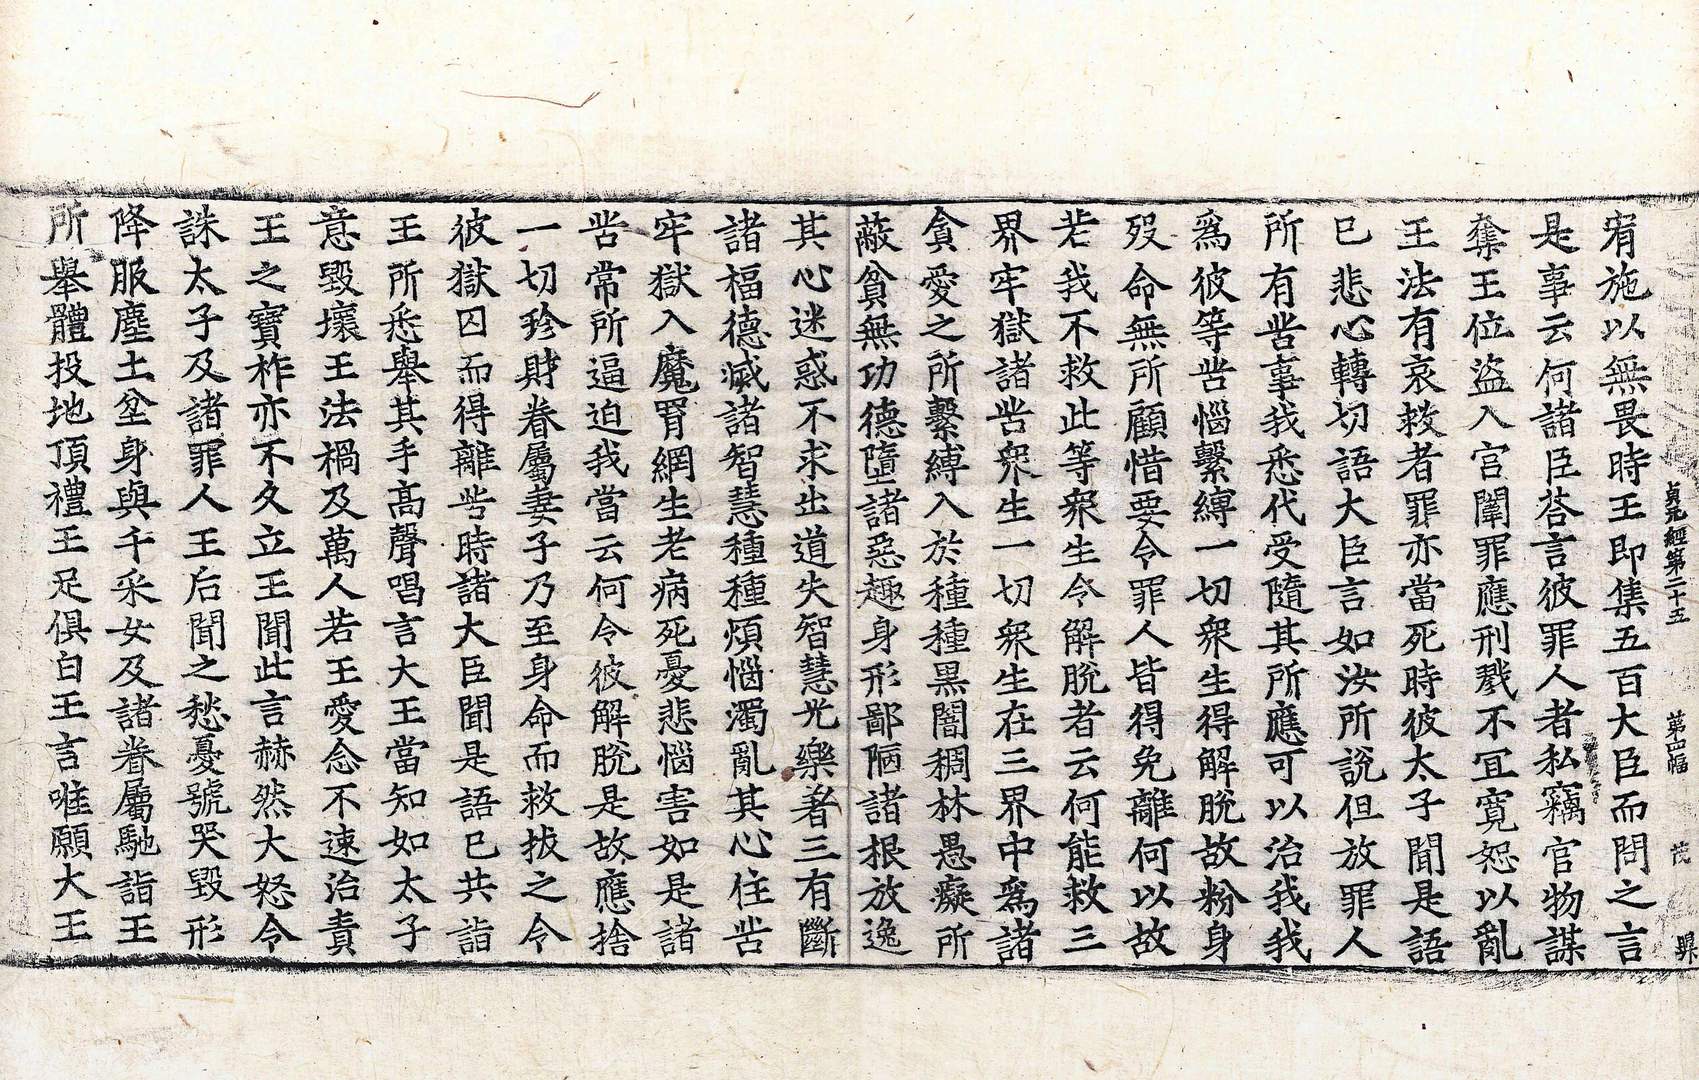 貞元經第二十五 第四幅 茂 㒷
宥施以無畏時王即集五百大臣而問之言
是事云何諸臣荅言彼罪人者私竊官物謀
奪王位盜入宮闈罪應刑戮不宜寬恕以亂
王法有哀救者罪亦當死時彼太子聞是語
已悲心轉切語大臣言如汝所說但放罪人
所有苦事我悉代受隨其所應可以治我我
爲彼等苦惱繫縛一切衆生得解脫故粉身
歿命無所顧惜要令罪人皆得免離何以故
若我不救此等衆生令解脫者云何能救三
界牢獄諸苦衆生一切衆生在三界中爲諸
貪愛之所繫縛入於種種黒闇稠林愚癡所
蔽貧無功德墮諸惡趣身形鄙陋諸根放逸
其心迷惑不求出道失智慧光樂著三有斷
諸福德滅諸智慧種種煩惱濁亂其心住苦
牢獄入魔罥網生老病死憂悲惱害如是諸
苦常所逼迫我當云何令彼解脫是故應捨
一切珍財眷屬妻子乃至身命而救拔之令
彼獄囚而得離苦時諸大臣聞是語已共詣
王所悉舉其手高聲唱言大王當知如太子
意毀壞王法禍及萬人若王愛念不速治責
王之寶柞亦不久立王聞此言赫然大怒令
誅太子及諸罪人王后聞之愁憂號哭毀形
降服塵土坌身與千采女及諸眷屬馳詣王
所舉體投地頂禮王足俱白王言唯願大王